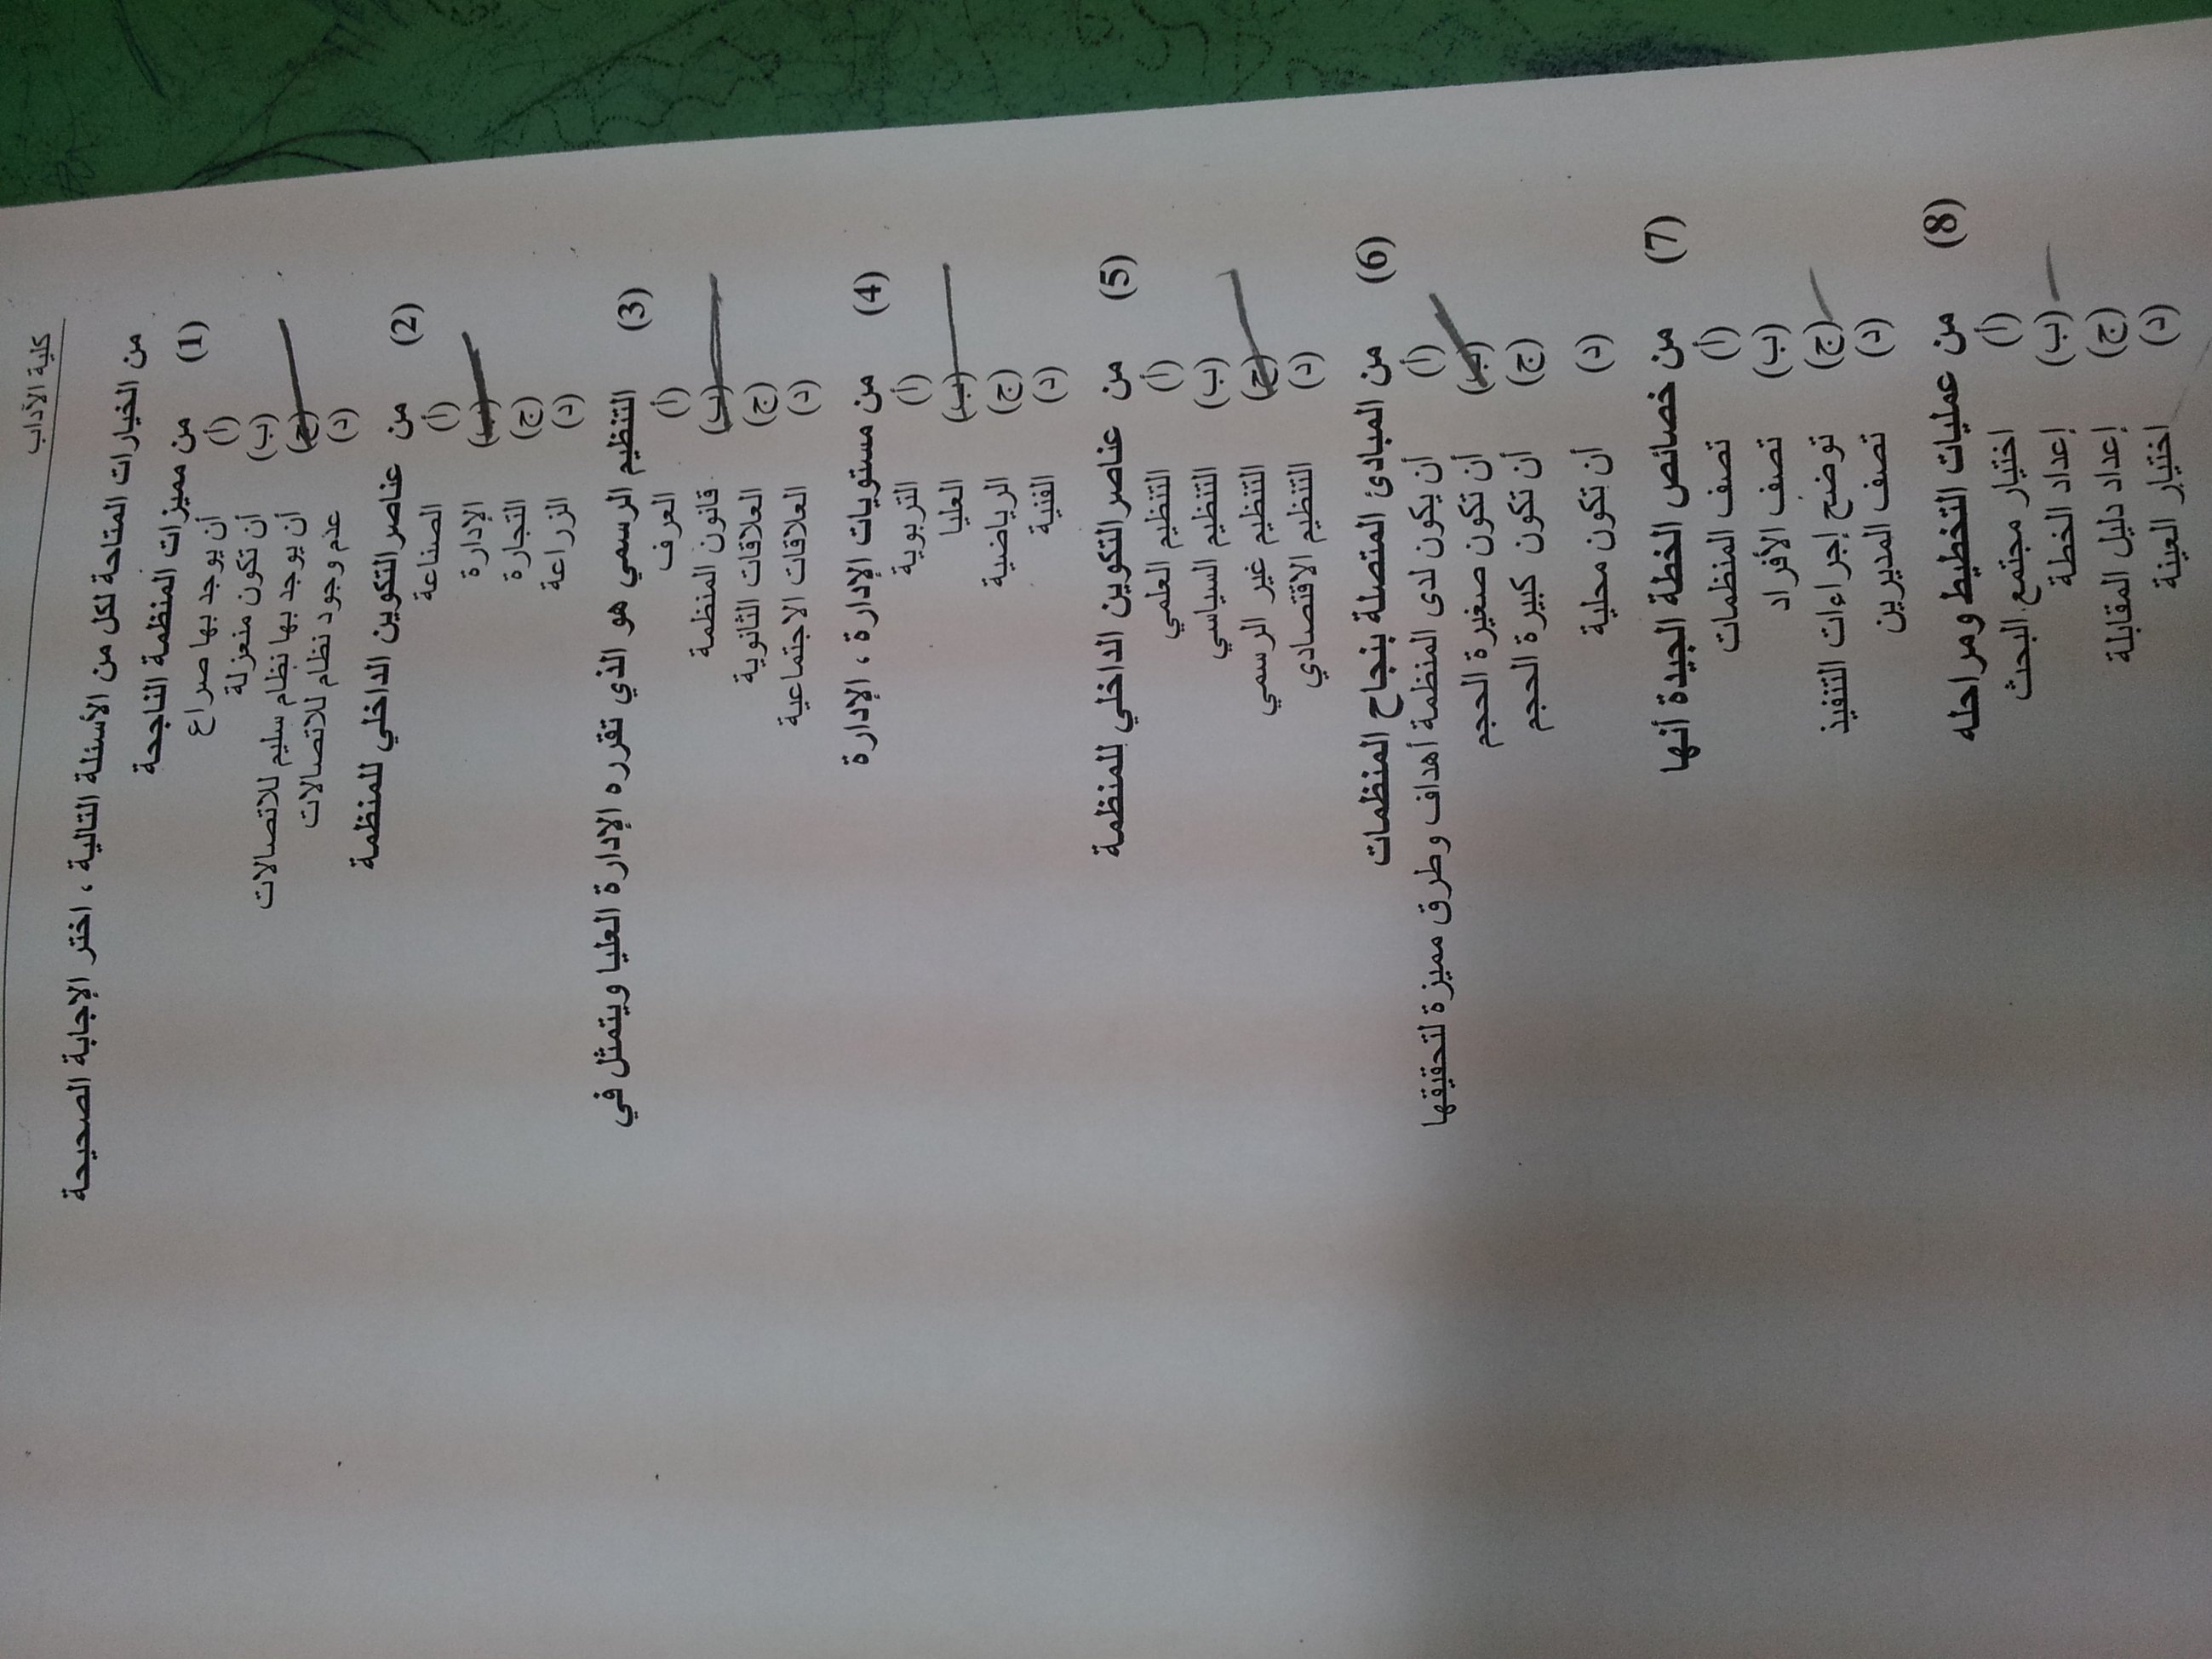 كلية الآداب
من الخيارات المتاحة لكل من الأسئلة التالية ، اختر الإجابة الصحيحة
(1) من مميزات المنظمة الناجحة
(أ) أن يوجد بها صراع
(ب) أن تكون منعزلة
(ج) أن يوجد بها نظام سليم للاتصالات
(د) عدم وجود نظام للاتصالات
(2) من عناصر التكوين الداخلي للمنظمة
(أ) الصناعة
(ب) الإدارة
(ج) التجارة
(د) الزراعة
(3) التنظيم الرسمي هو الذي تقرره الإدارة العليا ويتمثل في
(أ) العرف
(ب) قانون المنظمة
(ج) العلاقات الثانوية
(د) العلاقات الاجتماعية
(4) من مستويات الإدارة ، الإدارة
(أ) التربوية
(ب) العليا
(ج) الرياضية
(د) الفنية
(5) من عناصر التكوين الداخلي للمنظمة
(أ) التنظيم العلمي
(ب) التنظيم السياسي
(ج) التنظيم غير الرسمي
(د) التنظيم الاقتصادي
(6) من المبادئ المتصلة بنجاح المنظمات
(أ) أن يكون لدى المنظمة أهداف وطرق مميزة لتحقيقها
(ب) أن تكون صغيرة الحجم
(ج) أن تكون كبيرة الحجم
(د) أن تكون محلية
(7) من خصائص الخطة الجيدة أنها
(أ) تصف المنظمات
(ب) تصف الأفراد
(ج) توضح إجراءات التنفيذ
(د) تصف المديرين
(8) من عمليات التخطيط ومراحله
(أ) اختيار مجتمع البحث
(ب) إعداد الخطة
(ج) إعداد دليل المقابلة
(د) اختيار العينة